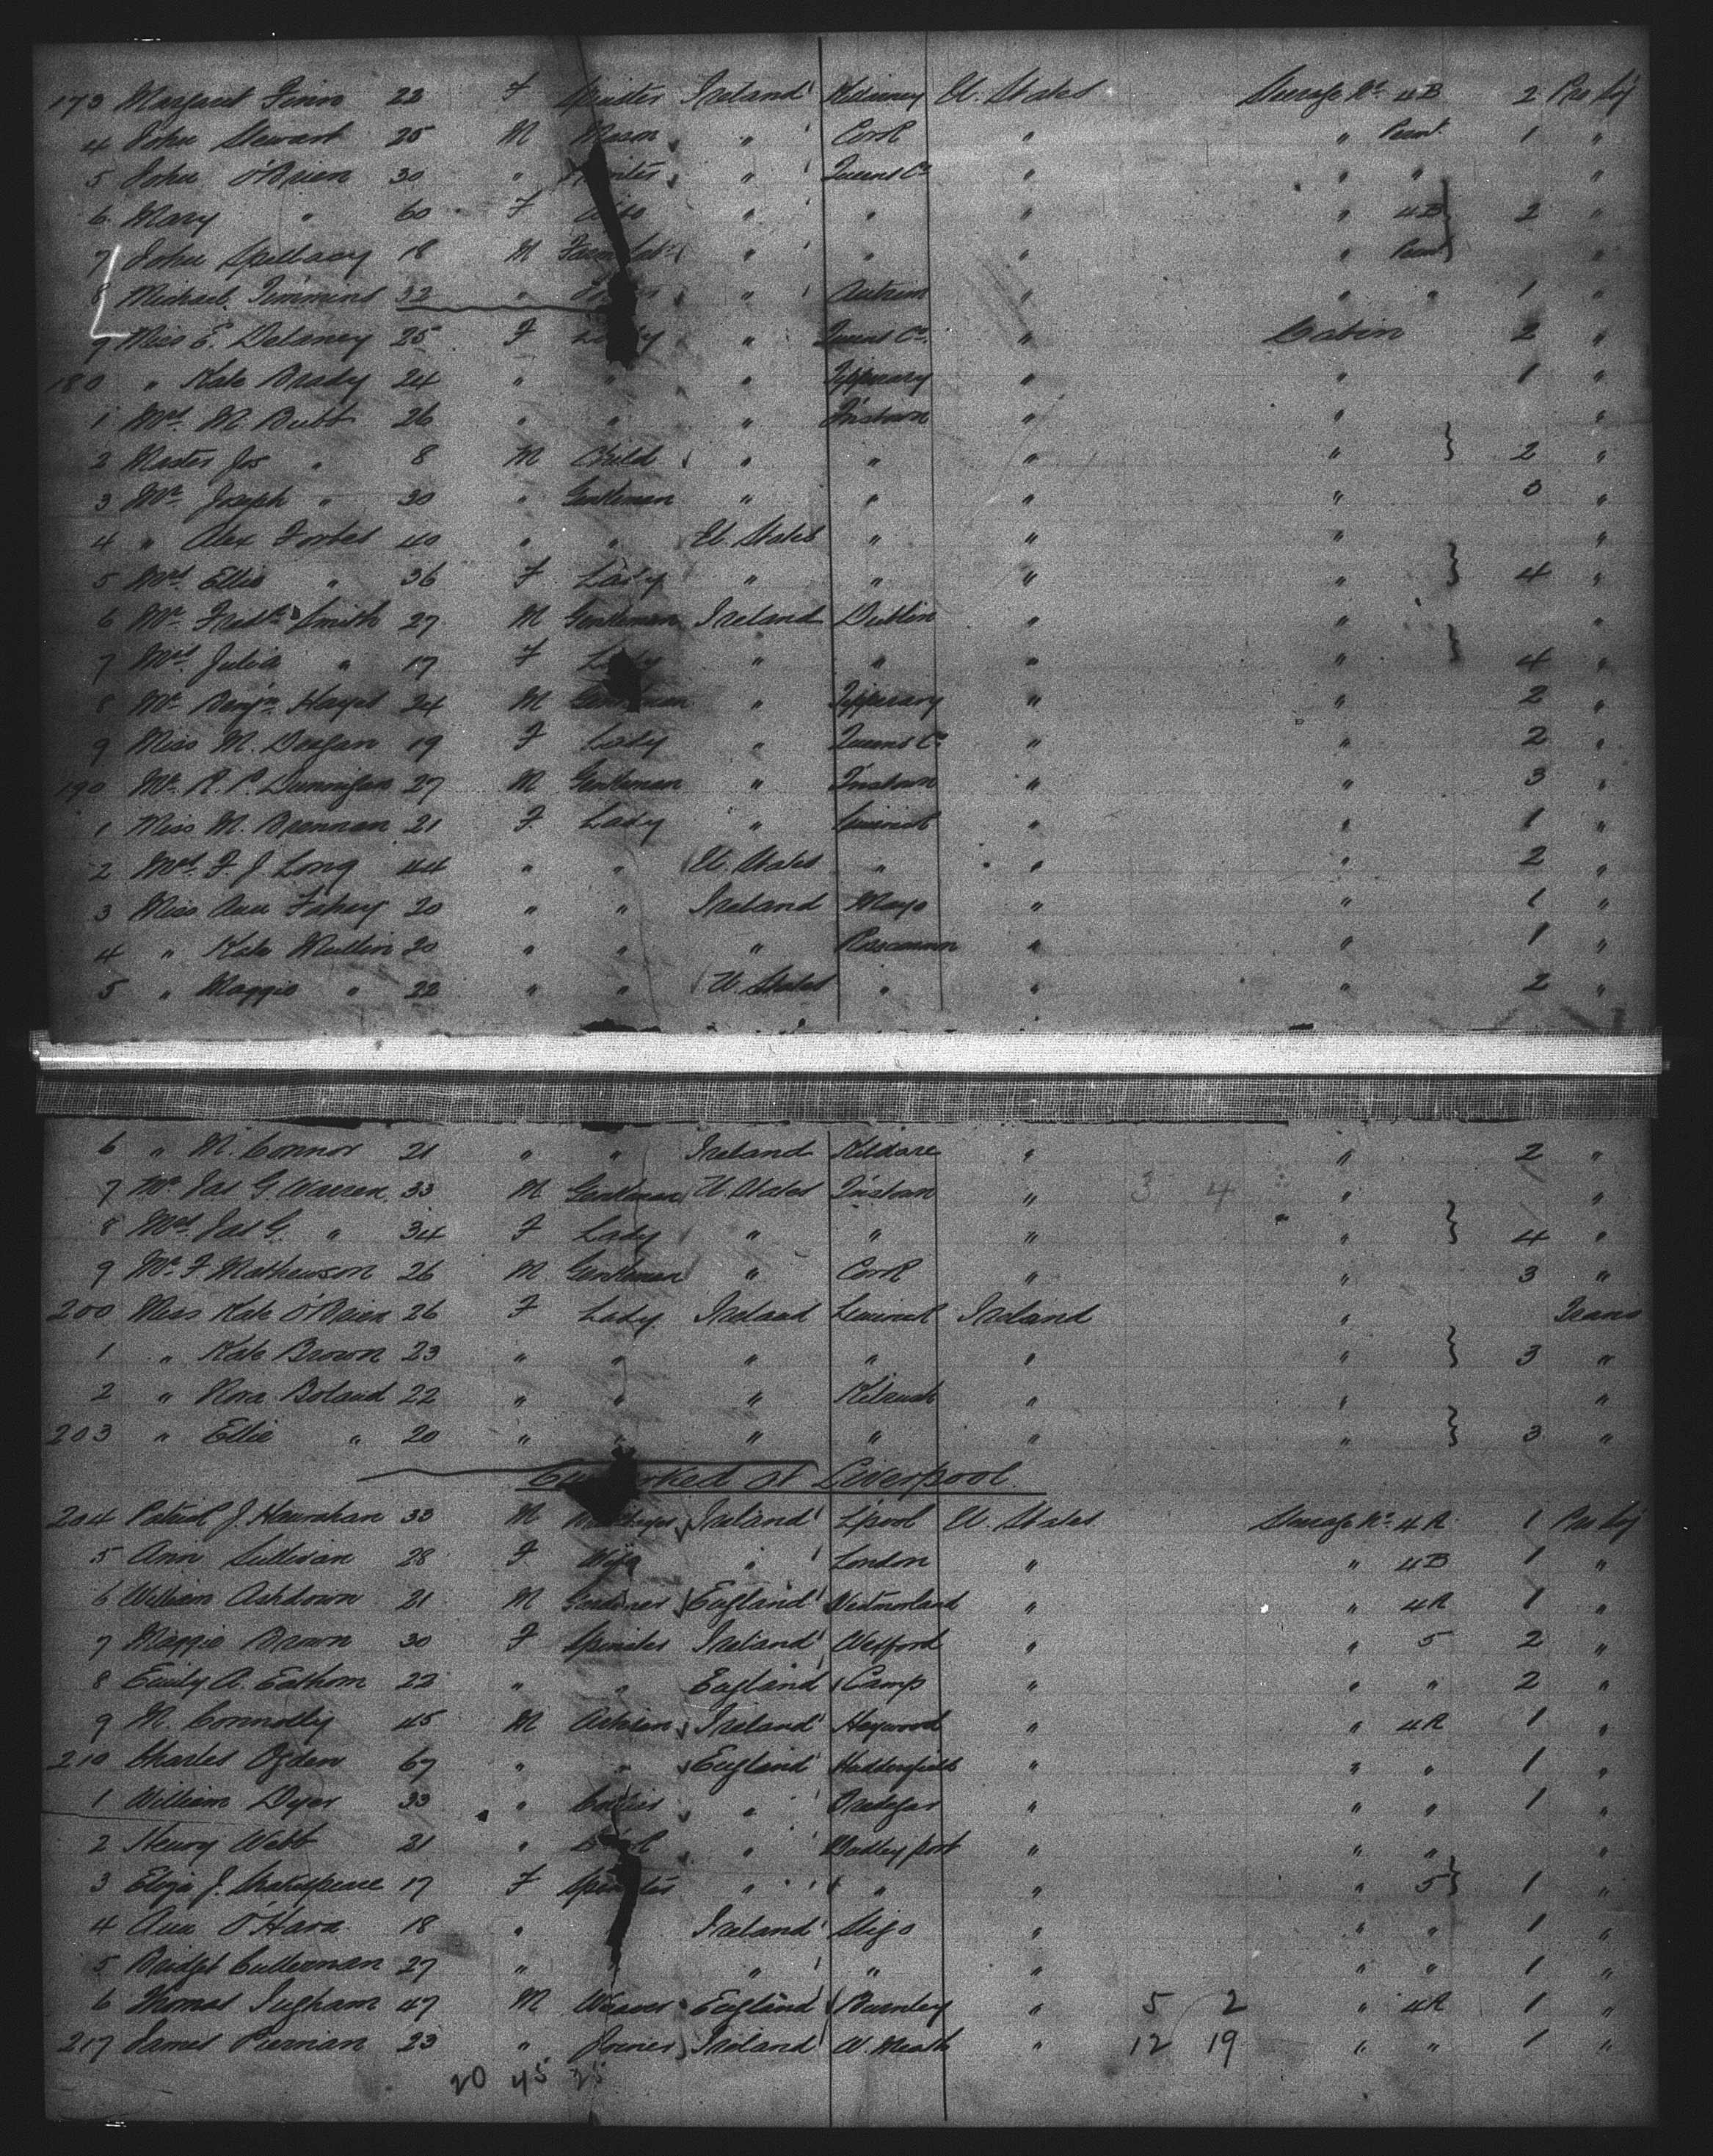 173 Margaret Finn 22 F Spinster Ireland Kilkenny U. States Steerage No. 4B 2 Pro Sij
4 John Stewart 25 M Mason " Cork " " 1 "
5 John O'Brien 30 " " Queens Co. " " " "
6 Mary " 60 F Wife " " " " 4B 2 "
7 John Spellacy 18 M Farm Lab. " " " " "
8 Michael Timmins 32 " " Antrim " " " 1 "
9 Miss E. Delaney 25 F Lady " Queens Co. " Cabin 2 "
180 " Kate Brady 24 " " " Tipperary " " 1 "
1 Mrs. M. Butt 26 " " " " " "
2 Master Jos " 8 M Child " " " " 2 "
3 Mr. Joseph " 30 " Gentleman " " " " "
4 " Alex Forbes 40 " " U. States " " " "
5 Mrs. Ellie " 36 F Lady " " " " 4 "
6 Mr. Fredk. Smith 27 M Gentleman Ireland Dublin " " "
7 Mrs. Julia " 17 F Lady " " " " 4 "
8 Mr. Benjn. Hayes 24 M Gentleman " Tipperary " " 2 "
9 Miss M. Dorgan 19 F Lady " Queens Co. " " 2 "
190 Mr. R. P. Dunnigan 27 M Gentleman " " " 3 "
1 Miss M. Brennan 21 F. Lady " Limerick " " 1 "
2 Mrs. F. J Long 44 " " U. States " " " 2 "
3 Miss Ann Fahey 20 " " Ireland Mayo " " 1 "
4 " Kate Mullin 20 " " " Roscommon " " 1 "
5 " Maggie " 22 " " U. States " " " 2 "
6 " M. Connor 21 " " Ireland Kildare " " 2 "
7 Mr. Jas G. Warren 33 M Gentleman U. States " 3 4 " "
8 Mrs. Jas G. " 34 F Lady " " " " 4 "
9 Mr. F. Mathewson 26 M Gentleman " Cork " " 3 "
200 Miss Kate O'Brien 26 F Lady Ireland Limerick Ireland " Trans
1 " Kate Brown 23 " " " " " " 3 "
2 " Nora Boland 22 " " " Kilrush " " "
203 " Ellie " 20 " " " " " " 3 "
Embarked at Liverpool.
204 Patrick J. Hanrahan 33 M Ireland L'pool U. States Steerage No. 4A 1 Pro Sij
5 Ann Sullivan 28 F Wife " London " " 4B 1 "
6 William Ashdown 21 M Gardiner England Westmorland " " 4A 1 "
7 Maggie Brown 30 F Spinster Ireland Wexford " " 5 2 "
8 Emily A. Eathorn 22 " " England Camp " " " 2 "
9 M. Connolly 45 M Artisan Ireland Heywood " " 4A 1 "
210 Charles Ogden 67 " " England Huddersfield " " " 1 "
1 William Dyer 33 " Collier " Tredegar " " " 1 "
2 Henry Webb 21 " " Dudley port " " " "
3 Eliza J. Shakespeare 17 F Spinster " " " " 5 1 "
4 Ann O'Hara 18 " Ireland Sligo " " " 1 "
5 Bridget Culleenan 27 " " " " " " 1 "
6 Thomas Ingham 47 M Weaver England Burnley " 5 2 " 4A 1 "
217 James Piernan 23 " Joiner Ireland W. Meath " 12 19 " " 1 "
20 45 25